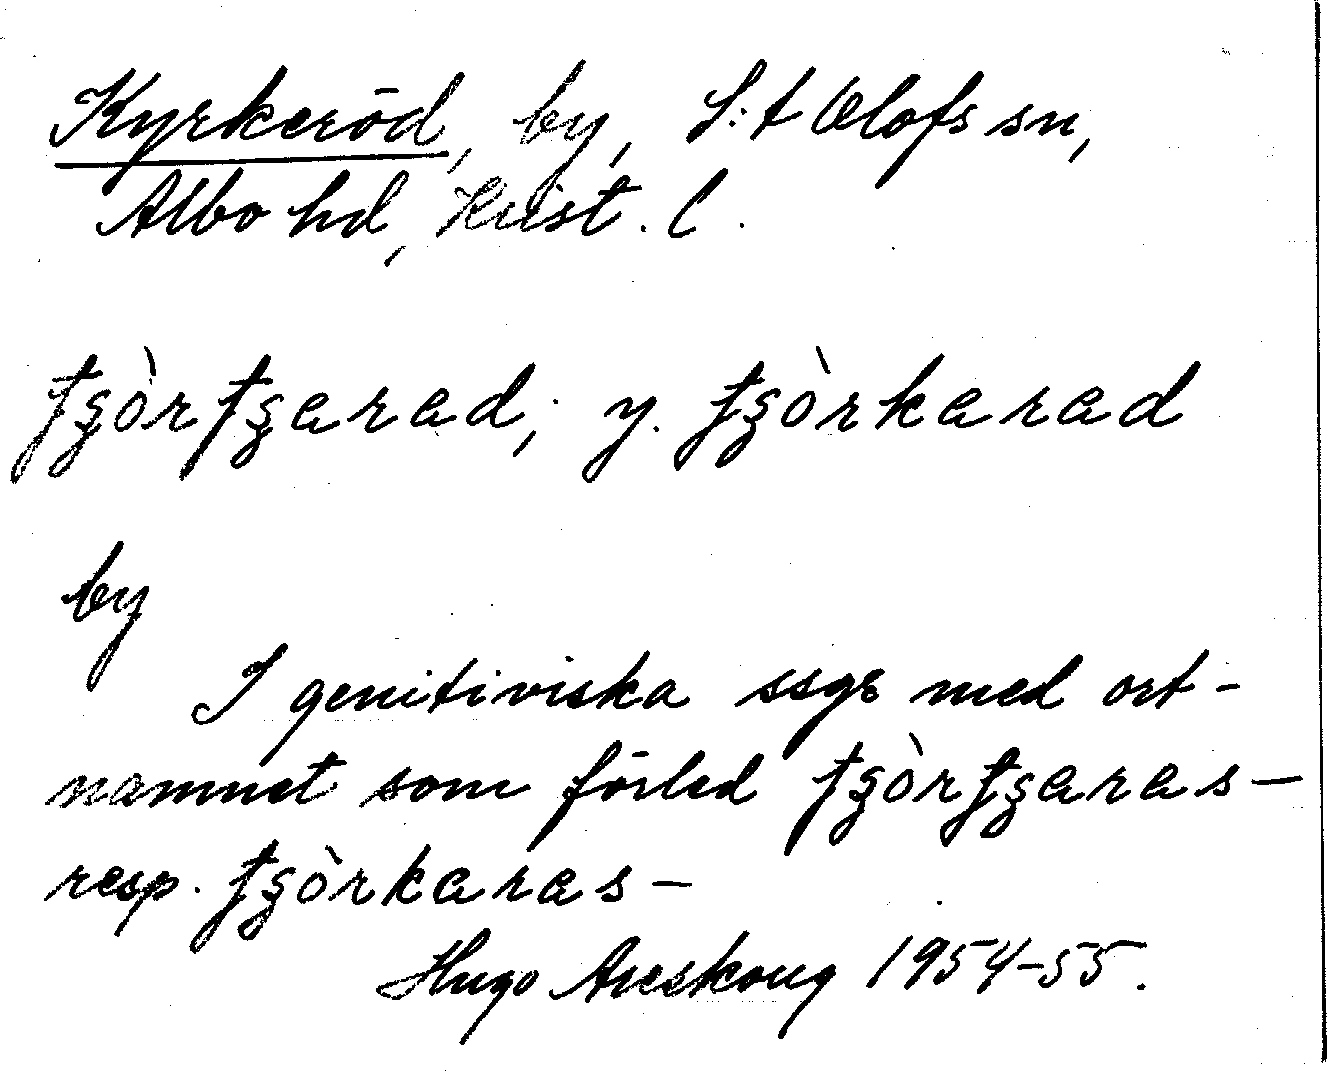 Kyrkeröd, by, S:t Olofs sn,
Albo hd, Krist. l.
tʒòrtʒarad; y. tʒòrkarad
by
I genitiviska ssgr med ort-
namnet som förled tʒòrtʒaras-
resp. tʒòrkaras-
Hugo Areskoug 1954-55.